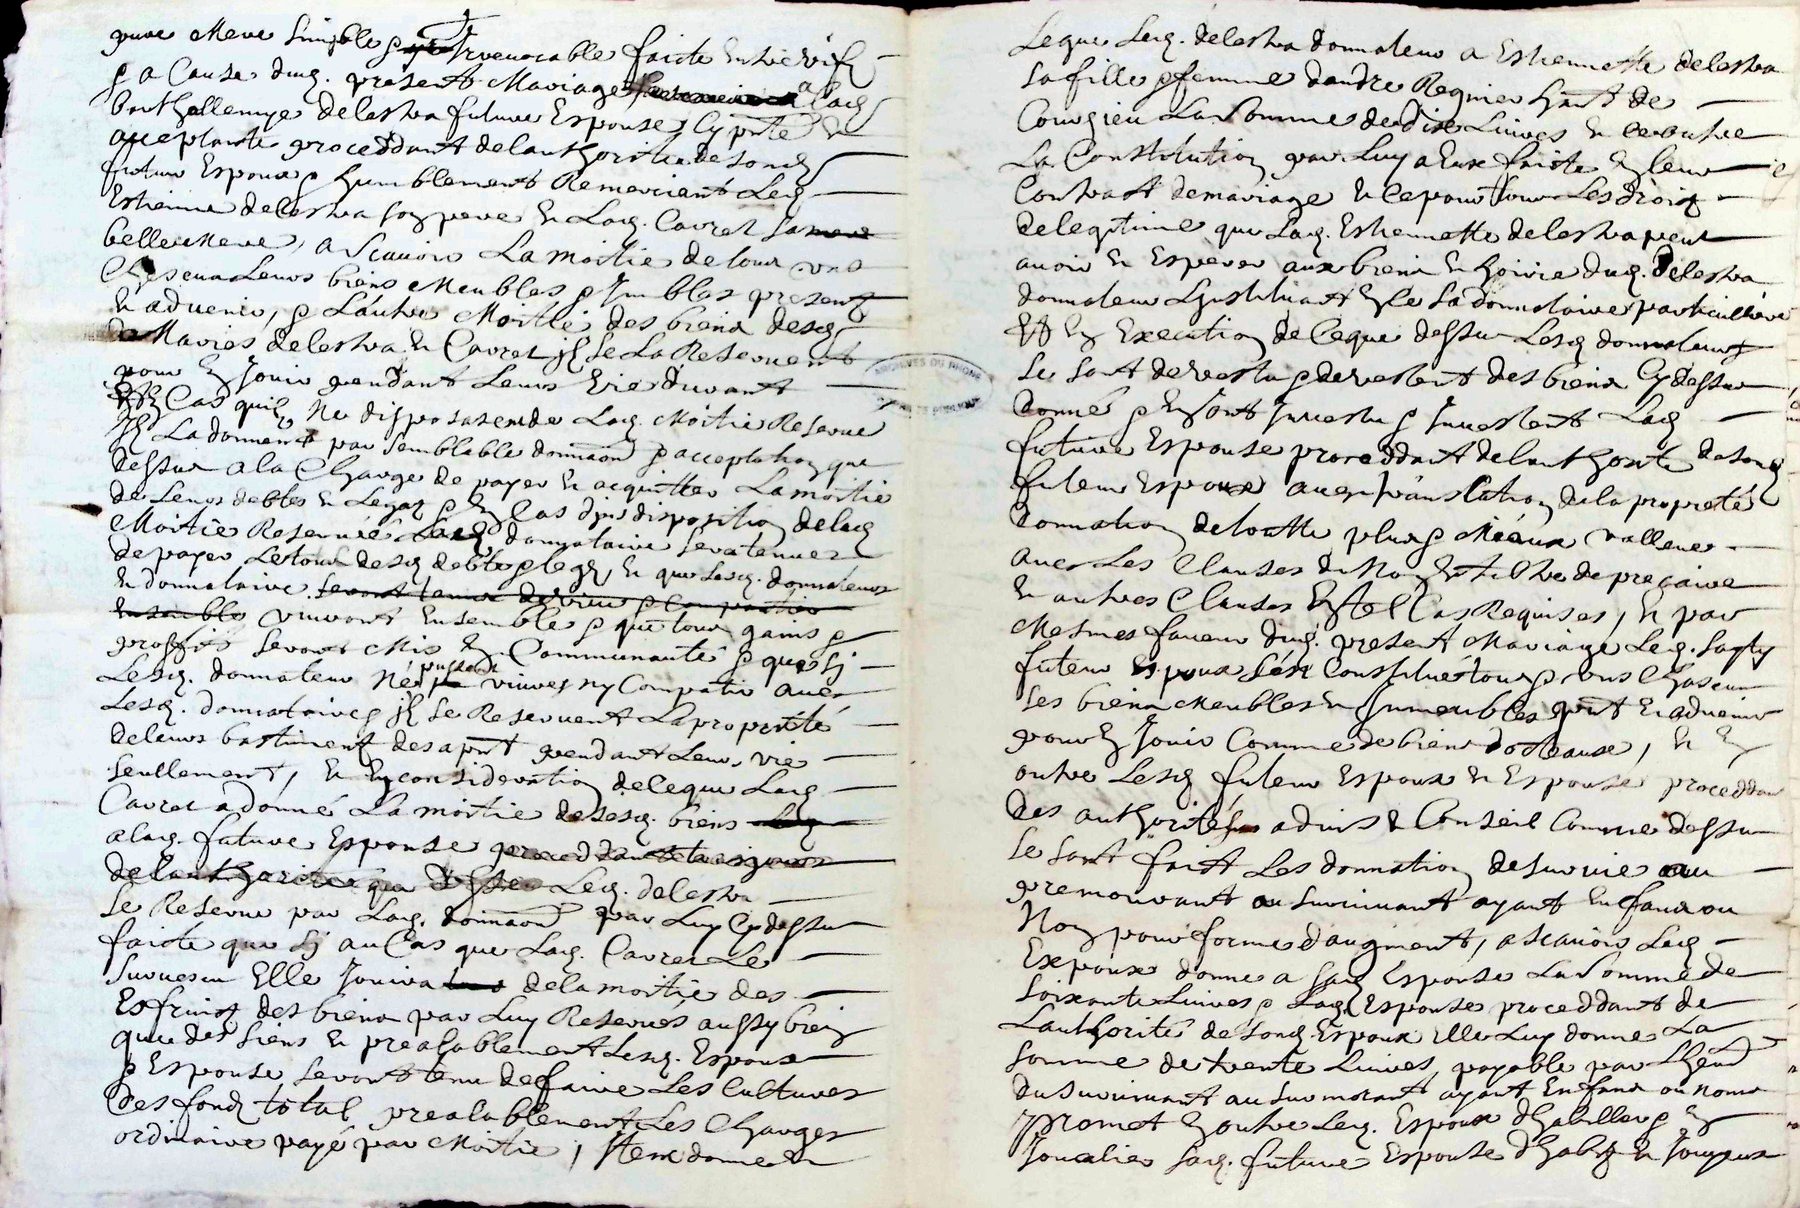 pure Mere simple & Irrevocable faicte Entre vifz
& a Cause dud. present Mariage a lad.
Berthellemye delestra future Espouse Cy pnte &
acceptante proceddant delauthorite de sond.
futur Espoux & humblement Remerciant Led.
Estienne delestra son pere & Lad. Cavret sa mere
belle Mere, a Scauoir La moitie de tous vns
Chescuns Leurs biens Meubles & Imbles presentz
& aduenir, & L'autre Moitie des biens desd.
Maries delestra & Cavret ilz se La Reseruent
pour En Jouir pendant Leurs vie durant
Et En Cas quilz Ne disposassent de Lad. Moitie Reserue
Ilz La donnent par semblable donnaon & acceptation que
dessus a la Charge de payer & acquitter La moitie
de Leurs debtes & Legatz & En Cas d'jndisposition delad.
Moitie Reseruée Lad. donnataire sera tenue
de payer Le tout desd. debtes & legz, & que Lesd. donnateurs
& donnataire seront tenus de viure & Compatir
Ensemble viuront Ensemble & que tous gains &
proffits seront Mis En Communauté & que sy
Lesd. donnateurs Ne pussent viures ny Compatir auec
Lesd. donnataires ilz se Reseruent La propriété
de leurs bastiments desapnt pendant Leur vie
seullement, & En consideration de ceque Lad.
Cavret a donné La moitie de sesd. biens
a lad. future Espouse
delauthorite que dessus Led. delestra
se Reserue par Lad. donnaon par Luy Cy dessus
faicte que sy au Cas que Lad. Cavret Le
suruesca Elle Jouira de la moitie des
Esfruitz des biens par Luy Reserues aussy bien
que des siens & prealablement Lesd. Espoux
& Espouse seront tenu de faire Les Cultures
des fondz total prealablement Les Charges
ordinaire payé par Moitie, Item donne
Leque Led. delestra donnateur a Estiennette delestra
sa fille & femme d'andre Regnier hant de
Courzieu La Somme de dix Liures & ce outre
La Constitution par Luy a Eux faicte En leur
Contrast de mariage & ce pour tous Les droitz
delegitime que Lad. Estiennette delestra peut
auoir & Esperer aux biens & hoirie dud. delestra
donnateur L'jnstituant En ce sa donnataire particulliere
Et En Execution de Ceque dessus Lesd. donnateurs
se sont deuestu & deuestent des biens Cy dessus
donné & En sont Inuestu & Inuestent Lad.
future Espouse proceddant delauthorite de sond.
futeur Espoux auec translation de la propriete
donnation de toutte plus & Mieux valleur
auec Les Clauses de Non Estiltre de precaire
& autres Clauses En tel Cas Requises, & par
Mesmes faueur dud. present Mariage Led. Sapty
futeur Espoux s'est Constitué tous & vns Chascun
ses biens Meubles & Jmmeubles pnt & aduenir
pour En Jouir Comme de biens dotteaux, & En
outre Lesd. futeur Espoux & Espouse proceddant
des authorités aduis & Conseil Comme dessus
se sont faict Les donnation de suruie au
premourant au suruiuant ayant Enfans ou
Non pour forme d'augment, a scauoir Led.
Expoux donne a sad. Espouse La Somme de
soixante Liures & Lad. Espouse proceddant de
Lauthorité de sond. Espoux Elle Luy donne La
somme de trente Liures, payable par L'herd.
du suruiuant au surmorant ayant Enfans ou Nonn
promet En outre Led. Espoux d'habiller & En
Joucalier sad. future Espouse d'habitz & Joyaux
ARCHIVES DU RHONE